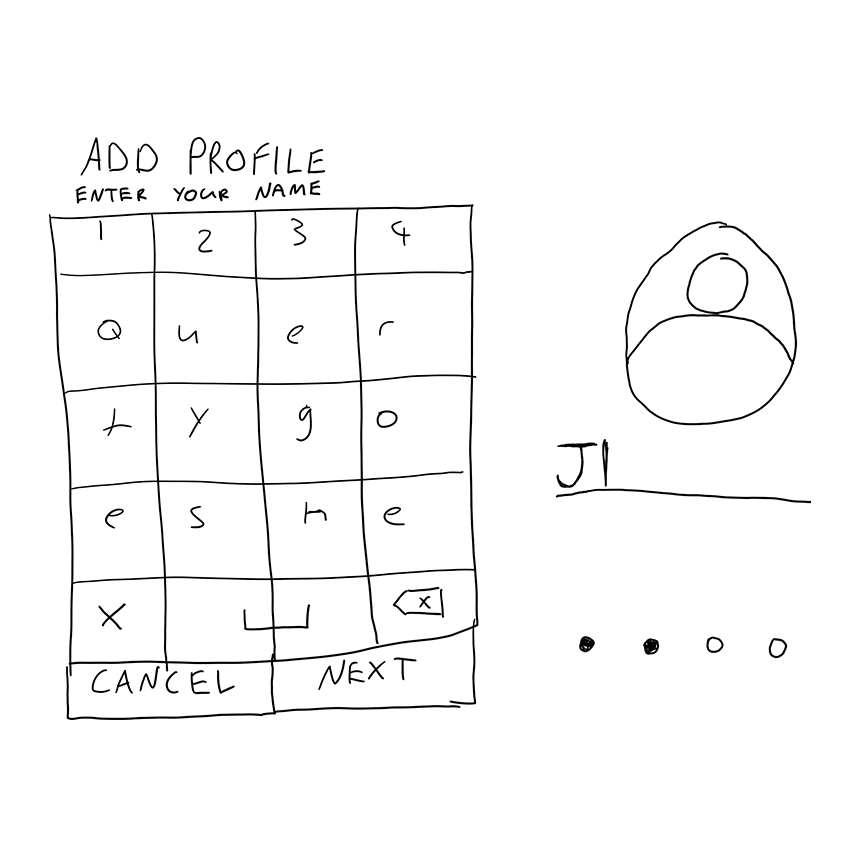 ADD PROFILE
ENTER YOUR NAME
1 2 3 4
Q u e r
t y g o
e s n e
X
x
CANCEL NEXT
J